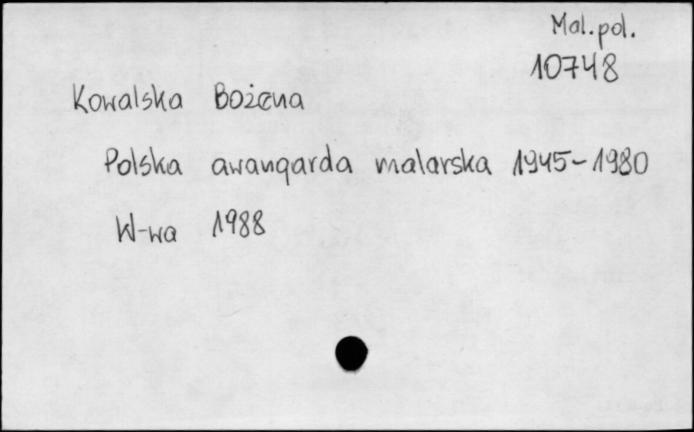 Mal. pol.
10748
Kowalska Bożena
Polska awangarda malarska 1945-1980
W-wa 1988